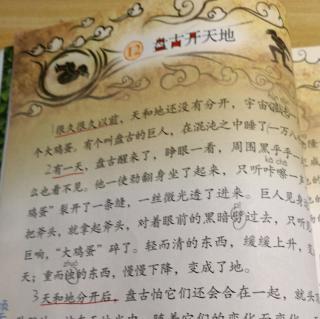 12 盘古开天地
1很久很久以前，天和地还没有分开，宇宙
个大鸡蛋。有个叫盘古的巨人，在混沌之中睡了一万八
2有一天，盘古醒来了，睁眼一看，周围黑乎乎一
kā chā
么也看不见。他一使劲翻身坐了起来，只听咔嚓一
鸡蛋”裂开了一条缝，一丝微光透了进来。巨人见身
把斧头，就拿起斧头，对着眼前的黑暗劈过去，只听
巨响，“大鸡蛋”碎了。轻而清的东西，缓缓上升，变
zhuó
天；重而浊的东西，慢慢下降，变成了地。
3天和地分开后，盘古怕它们还会合在一起，就头